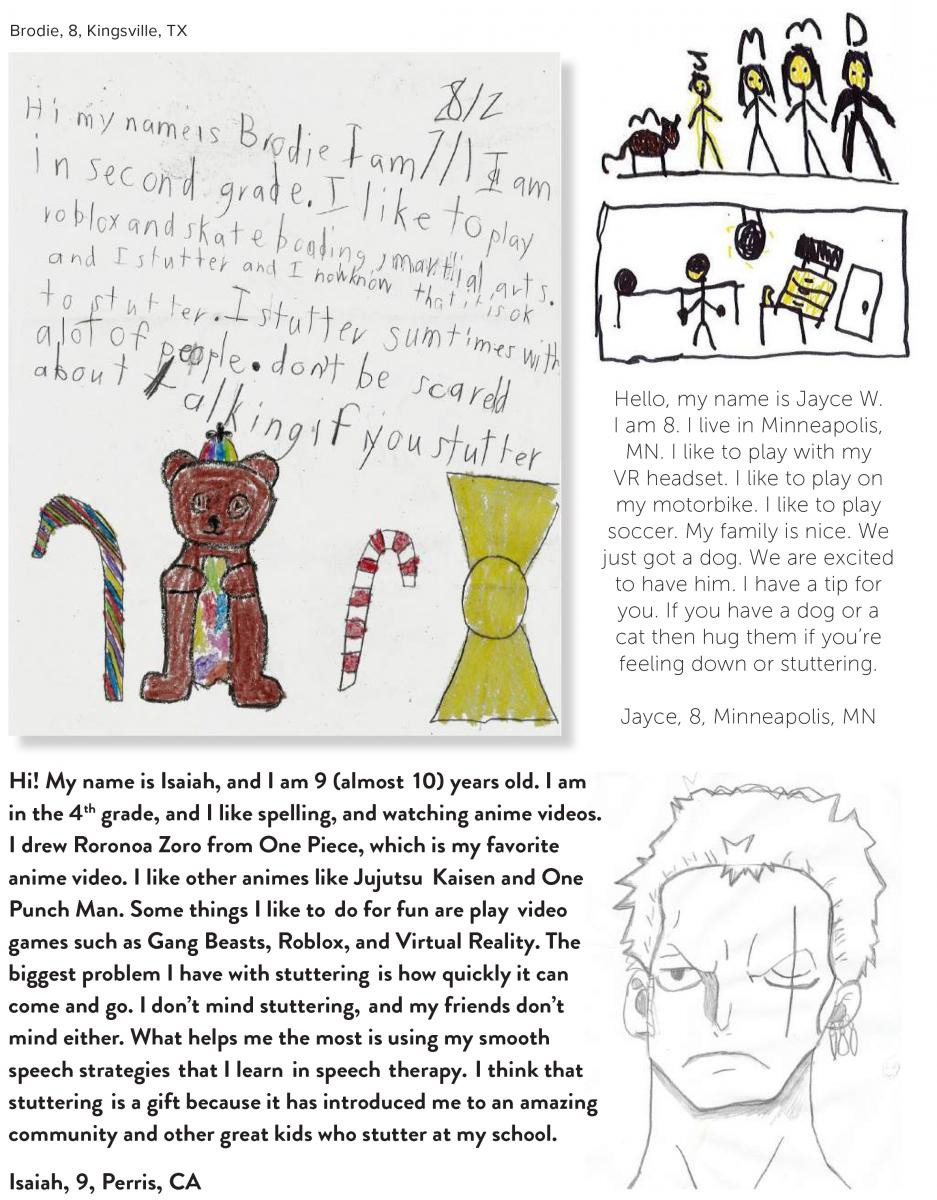 Brodie, 8, Kingsville, TX
8/2
Hi my nameis Brodie I am 7/1 I am
in second grade. I like to play
roblox and skate boading, marthial arts.
and I stutter and I nowknow that it is ok
to stutter. I stutter sumtimes with
alot of people. don't be scared
about talking if you stutter
M M D
Hello, my name is Jayce W.
I am 8. I live in Minneapolis,
MN. I like to play with my
VR headset. I like to play on
my motorbike. I like to play
soccer. My family is nice. We
just got a dog. We are excited
to have him. I have a tip for
you. If you have a dog or a
cat then hug them if you're
feeling down or stuttering.
Jayce, 8, Minneapolis, MN
Hi! My name is Isaiah, and I am 9 (almost 10) years old. I am
in the 4th grade, and I like spelling, and watching anime videos.
I drew Roronoa Zoro from One Piece, which is my favorite
anime video. I like other animes like Jujutsu Kaisen and One
Punch Man. Some things I like to do for fun are play video
games such as Gang Beasts, Roblox, and Virtual Reality. The
biggest problem I have with stuttering is how quickly it can
come and go. I don't mind stuttering, and my friends don't
mind either. What helps me the most is using my smooth
speech strategies that I learn in speech therapy. I think that
stuttering is a gift because it has introduced me to an amazing
community and other great kids who stutter at my school.
Isaiah, 9, Perris, CA